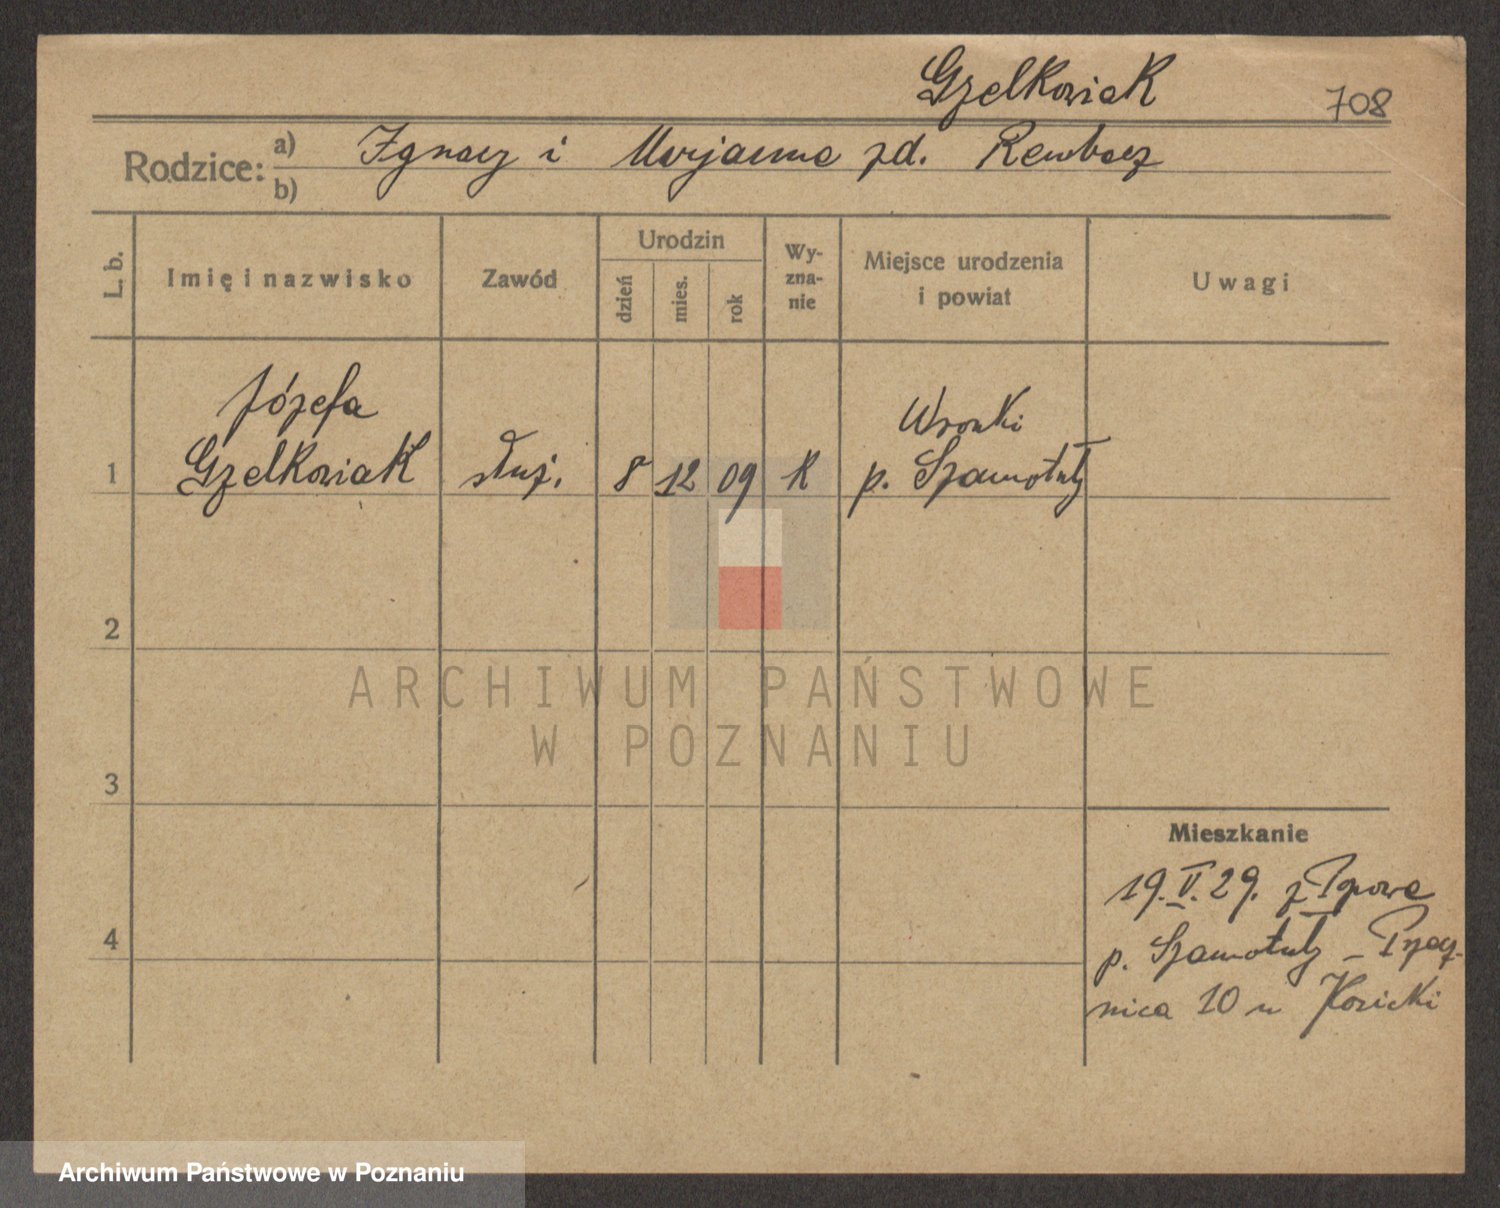 Gzelkowiak
708
Rodzice: a) b)
Ignacy i Marjanna zd. Rembacz
L. b.
Imię i nazwisko
Zawód
Urodzin
dzień
mies.
rok
Wy-
zna-
nie
Miejsce urodzenia
i powiat
Uwagi
1
Józefa
Gzelkowiak
służ.
8
12
09
K
Wronki
p. Szamotuły
2
3
4
Mieszkanie
19.V.29. z
p. Szamotuły – Przecz-
nica 10 u Kozicki
ARCHIWUM PAŃSTWOWE
W POZNANIU
Archiwum Państwowe w Poznaniu